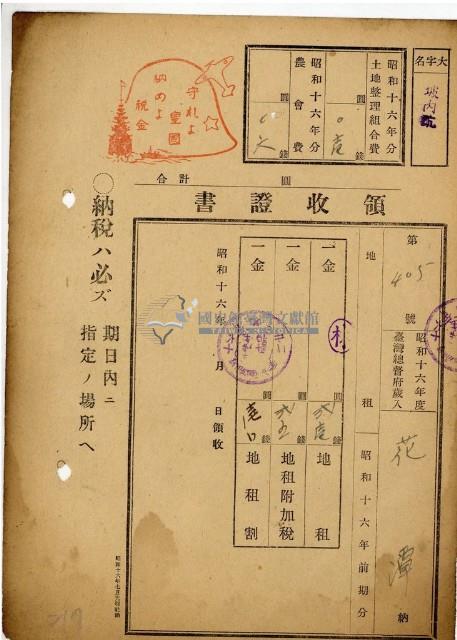 大字名
坡內坑
昭和十六年分
土地整理組合費
圓
錢
昭和十六年分
農會費
圓
錢
合計
圓
領收證書
第405號
昭和十六年度
臺灣總督府歲入
花
潭
納
地租
昭和十六年前期分
一金
圓
錢
地租
一金
圓
錢
地租附加稅
一金
圓
錢
地租割
昭和十六年
月
日領收
守れよ
皇國
納めよ
稅金
○納稅ハ必ズ
期日內ニ
指定ノ場所ヘ
國史館臺灣文獻館
TAIWAN HISTORICA